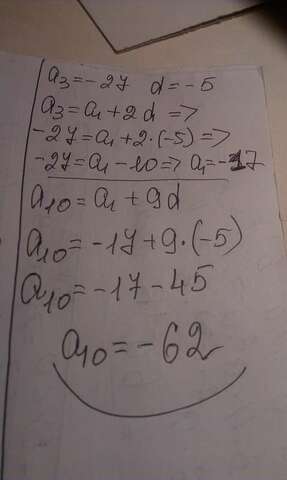 a₃=-27 d=-5
a₃=a₁+2d =>
-27=a₁+2·(-5)=>
-27=a₁-10=> a₁=-17
a₁₀=a₁+9d
a₁₀=-17+9·(-5)
a₁₀=-17-45
a₁₀=-62